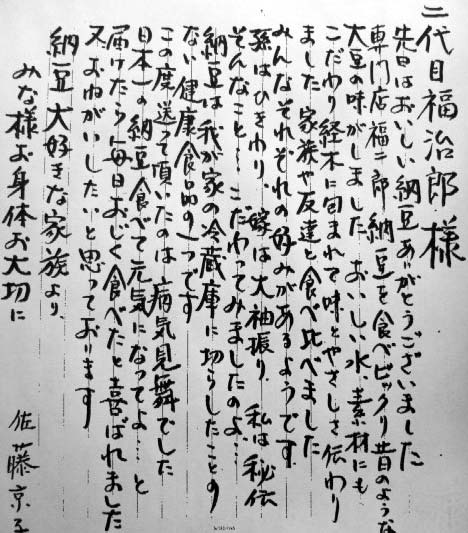 二代目福治郎様
先日はおいしい納豆ありがとうございました
専門店福二郎納豆を食べビックリ昔のような
大豆の味がしました おいしい水 素材にも
こだわり経木に包まれて味とやさしさ伝わり
ました 家族や友達と食べ比べました
みんなそれぞれの好みがあるようです
孫はひきわり、嫁は大袖振り、私は秘伝
そんなこと… こだわってみましたのよ…
納豆は我が家の冷蔵庫に切らしたことの
ない健康食品の一つです
この度送って頂いたのは病気見舞でした
日本一の納豆食べて元気になってよ…と
届けたら毎日おいしく食べたと喜ばれました
又おねがいしたいと思っております
納豆大好きな家族より、
みな様お身体お大切に
佐藤京子